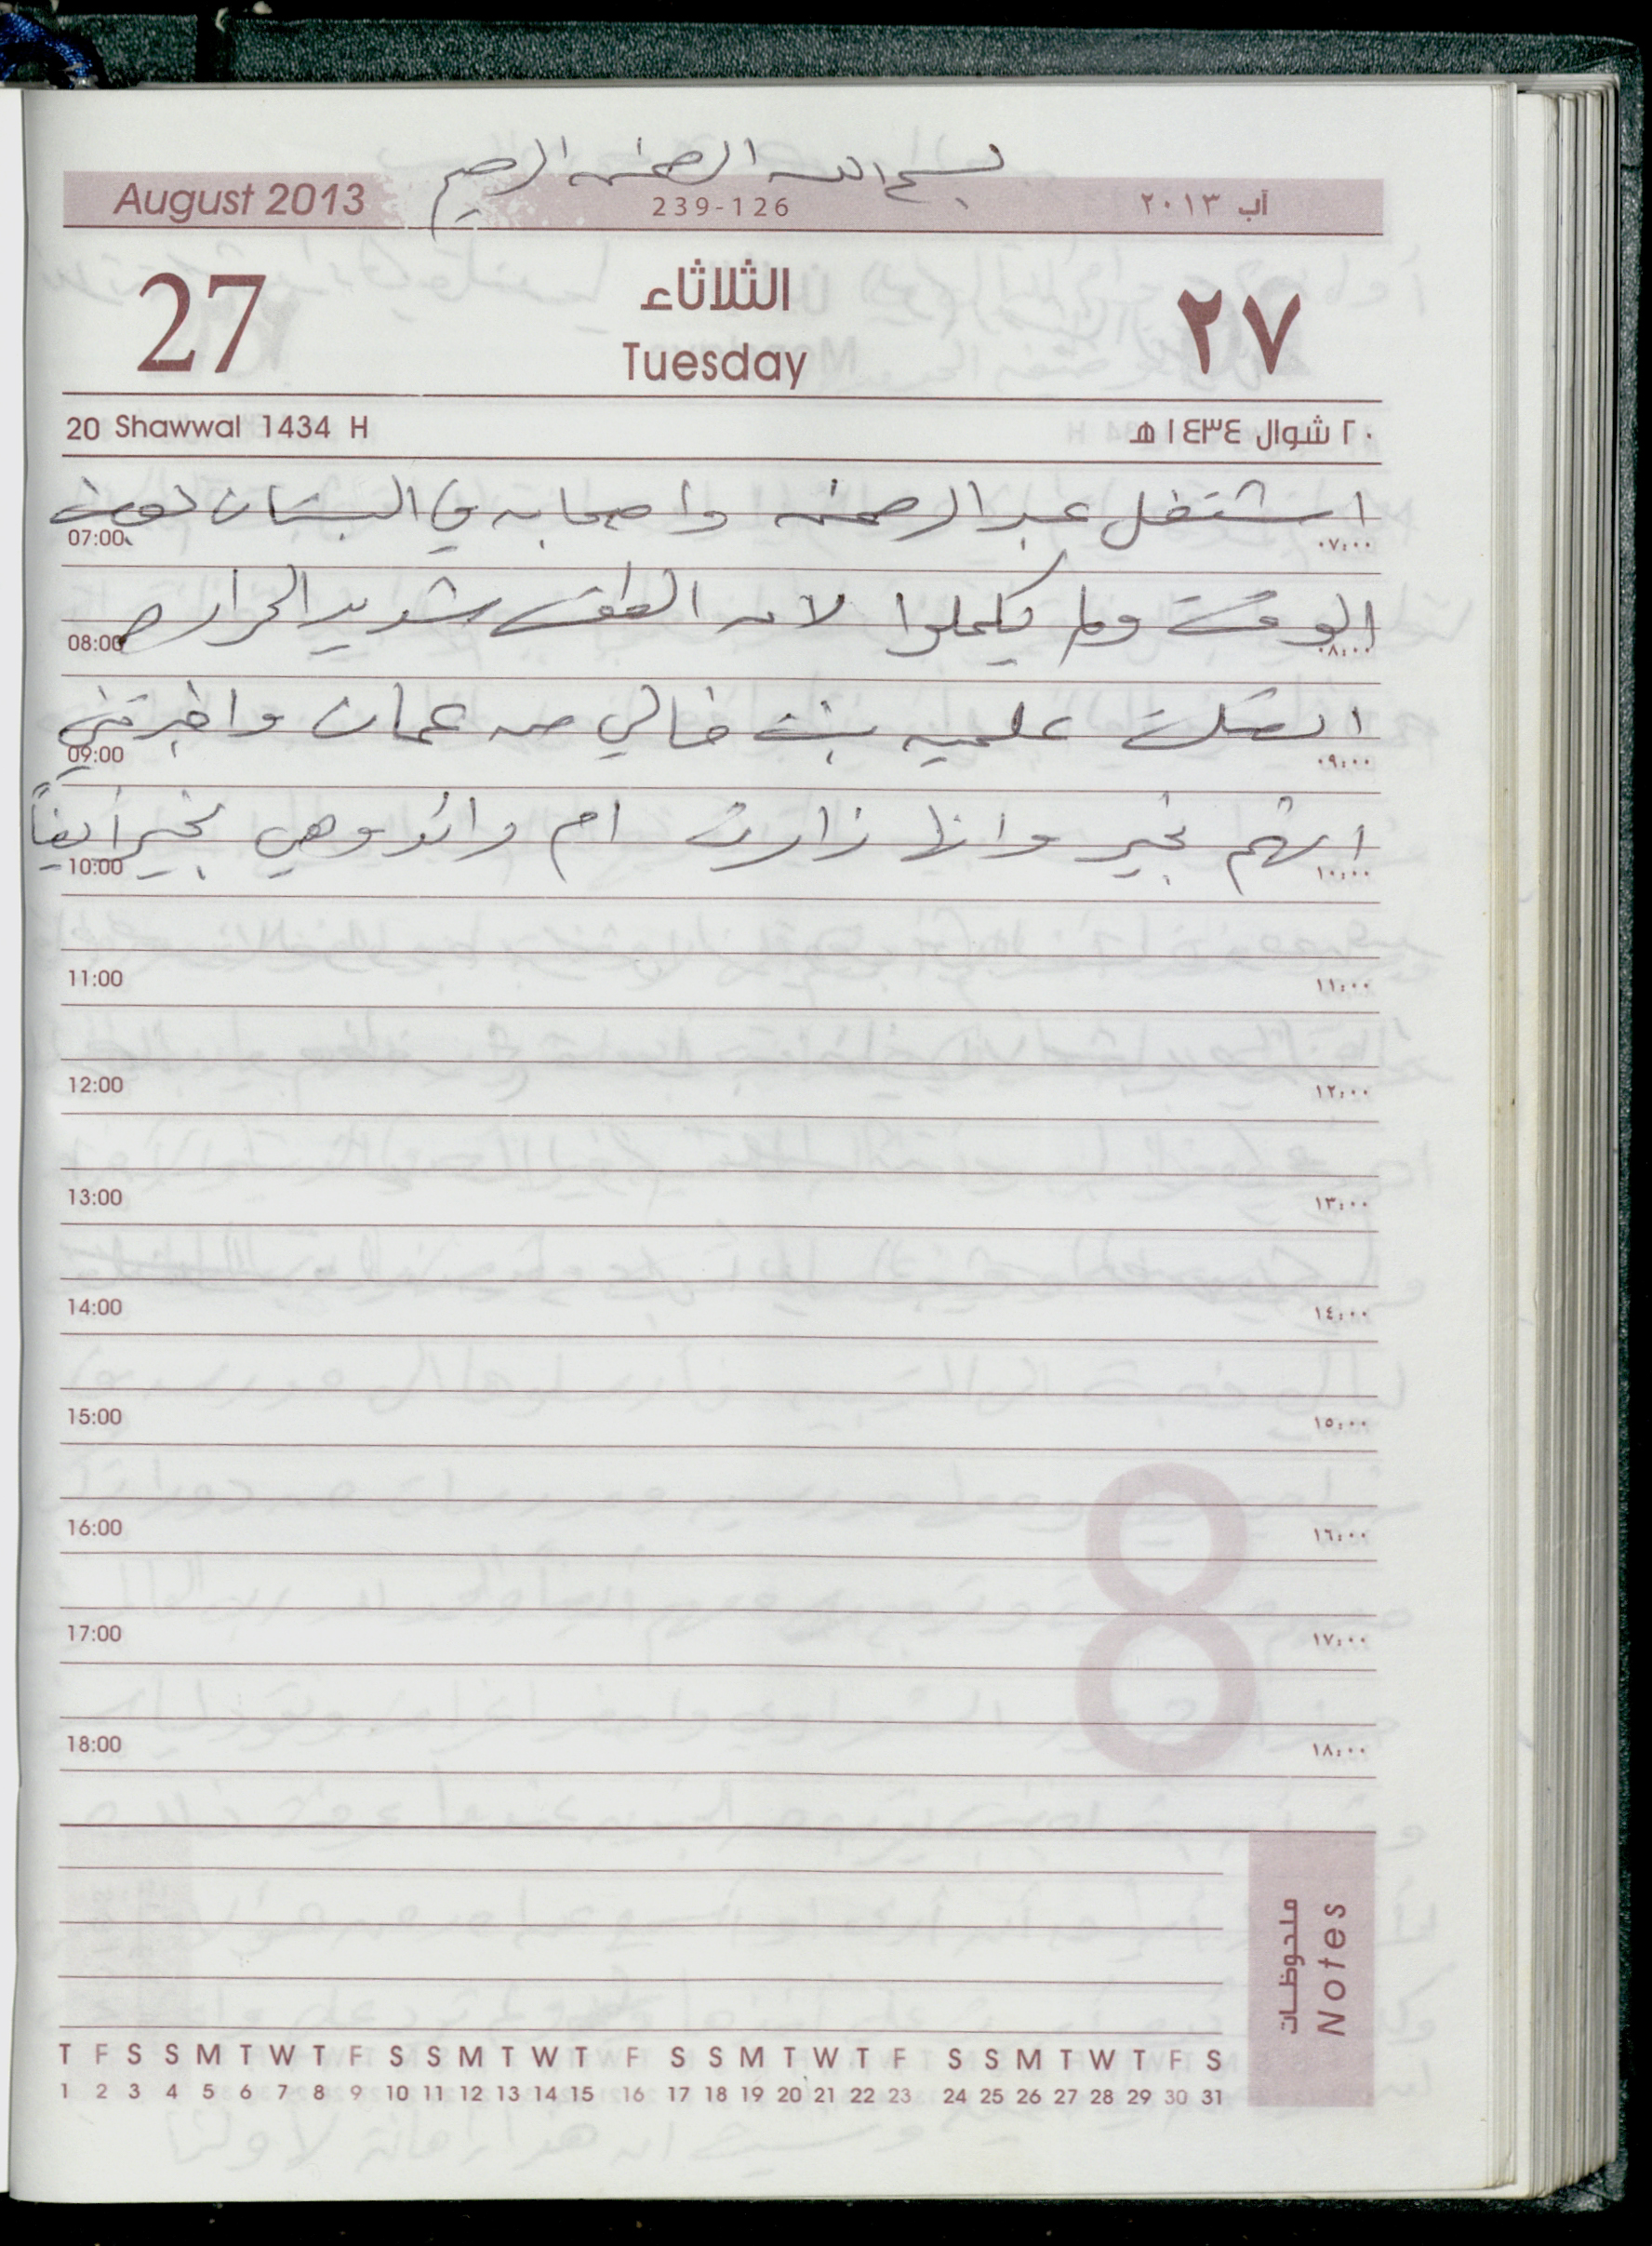 بسم الله الرحمن الرحيم
August 2013 239-126 آب ٢٠١٣
27 الثلاثاء ٢٧
Tuesday
20 Shawwal 1434 H ٢٠ شوال ١٤٣٤ هـ
اشتغل عبد الرحمن واصحابه في البستان نصف
07:00 ٠٧:٠٠
الوقت ولم يكملوا لان الطقس شديد الحراره
08:00 ٠٨:٠٠
اتصلت علميه بنت خالي من عمان واخبرتني
09:00 ٠٩:٠٠
انهم بخير وانها زارت ام رائد وهي بخير أيضاً
10:00 ١٠:٠٠
11:00 ١١:٠٠
12:00 ١٢:٠٠
13:00 ١٣:٠٠
14:00 ١٤:٠٠
15:00 ١٥:٠٠
16:00 ١٦:٠٠
17:00 ١٧:٠٠
18:00 ١٨:٠٠
8
ملحوظات
Notes
T F S S M T W T F S S M T W T F S S M T W T F S S M T W T F S
1 2 3 4 5 6 7 8 9 10 11 12 13 14 15 16 17 18 19 20 21 22 23 24 25 26 27 28 29 30 31